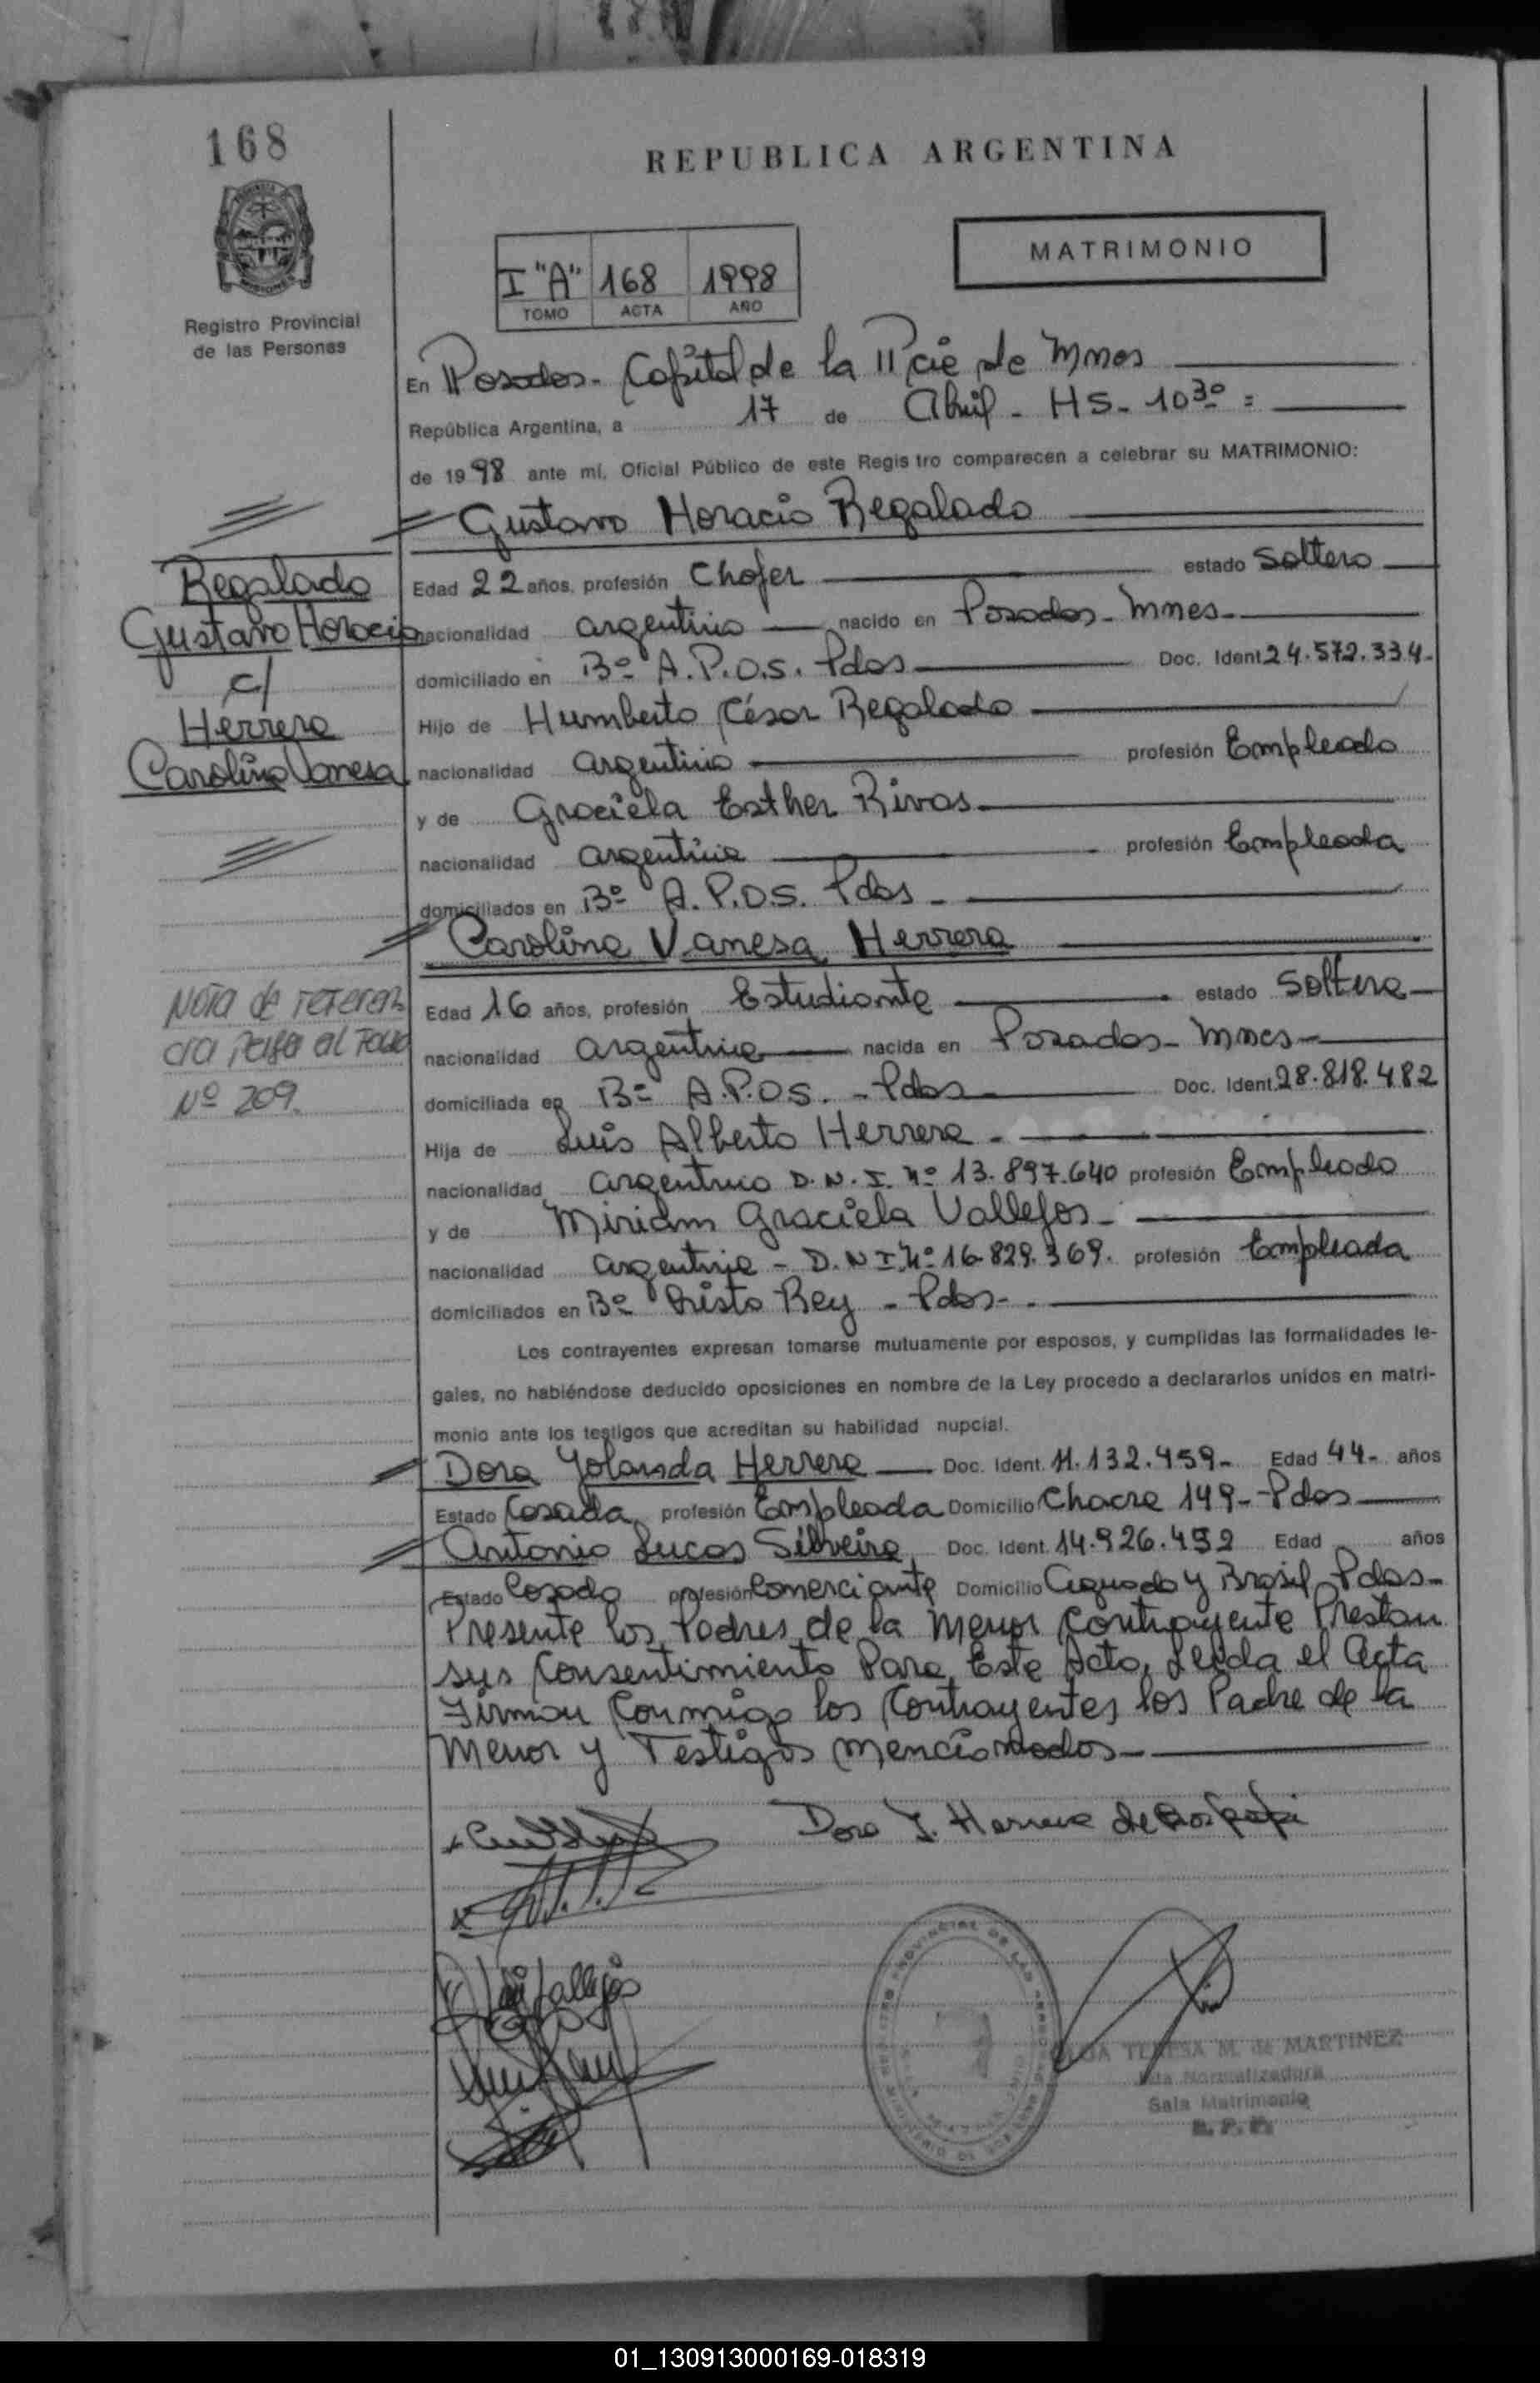 168
REPUBLICA ARGENTINA
MATRIMONIO
I "A" 168 1998
TOMO ACTA AÑO
Registro Provincial
de las Personas
En Posadas - Capital de la Pcie de Mnes
República Argentina, a 17 de Abril - HS - 10 30 =
de 1998 ante mí, Oficial Público de este Registro comparecen a celebrar su MATRIMONIO:
Gustavo Horacio Regalado
Edad 22 años, profesión Chofer estado Soltero
nacionalidad argentino nacido en Posadas - Mnes -
domiciliado en Bº A.P.O.S. Pdas Doc. Ident 24.572.334-
Hijo de Humberto César Regalado
nacionalidad argentino profesión Empleado
y de Graciela Esther Rivas
nacionalidad argentina profesión Empleada
domiciliados en Bº A.P.O.S. Pdas -
Regalado
Gustavo Horacio
c/
Herrera
Carolina Vanesa
Carolina Vanesa Herrera
Edad 16 años, profesión Estudiante estado Soltera
nacionalidad argentina nacida en Posadas - Mnes
domiciliada en Bº A.P.O.S. - Pdas Doc. Ident. 28.818.482
Hija de Luis Alberto Herrera -
nacionalidad argentino D.N.I. Nº 13.897.640 profesión Empleado
y de Miriam Graciela Vallejos -
nacionalidad argentina - D.N.I. Nº 16.829.369. profesión Empleada
domiciliados en Bº Cristo Rey - Pdas -
Nota de referen
cia pasa al Folio
Nº 209.
Los contrayentes expresan tomarse mutuamente por esposos, y cumplidas las formalidades le-
gales, no habiéndose deducido oposiciones en nombre de la Ley procedo a declararlos unidos en matri-
monio ante los testigos que acreditan su habilidad nupcial.
Dora Yolanda Herrera Doc. Ident. 11.132.459- Edad 44- años
Estado Casada profesión Empleada Domicilio Chacra 149 - Pdas
Antonio Lucas Silveira Doc. Ident. 14.926.492 Edad años
Estado Casado profesión Comerciante Domicilio Aguado y Brasil Pdas -
Presente los Padres de la Menor Contrayente Prestan
sus Consentimiento Para Este Acto, Leída el Acta
Firman Conmigo los Contrayentes los Padre de la
Menor y Testigos Mencionados -
Dora Y. Herrera de
TERESA M. de MARTINEZ
Normalizadora
Sala Matrimonio
R. P. P.
01_130913000169-018319